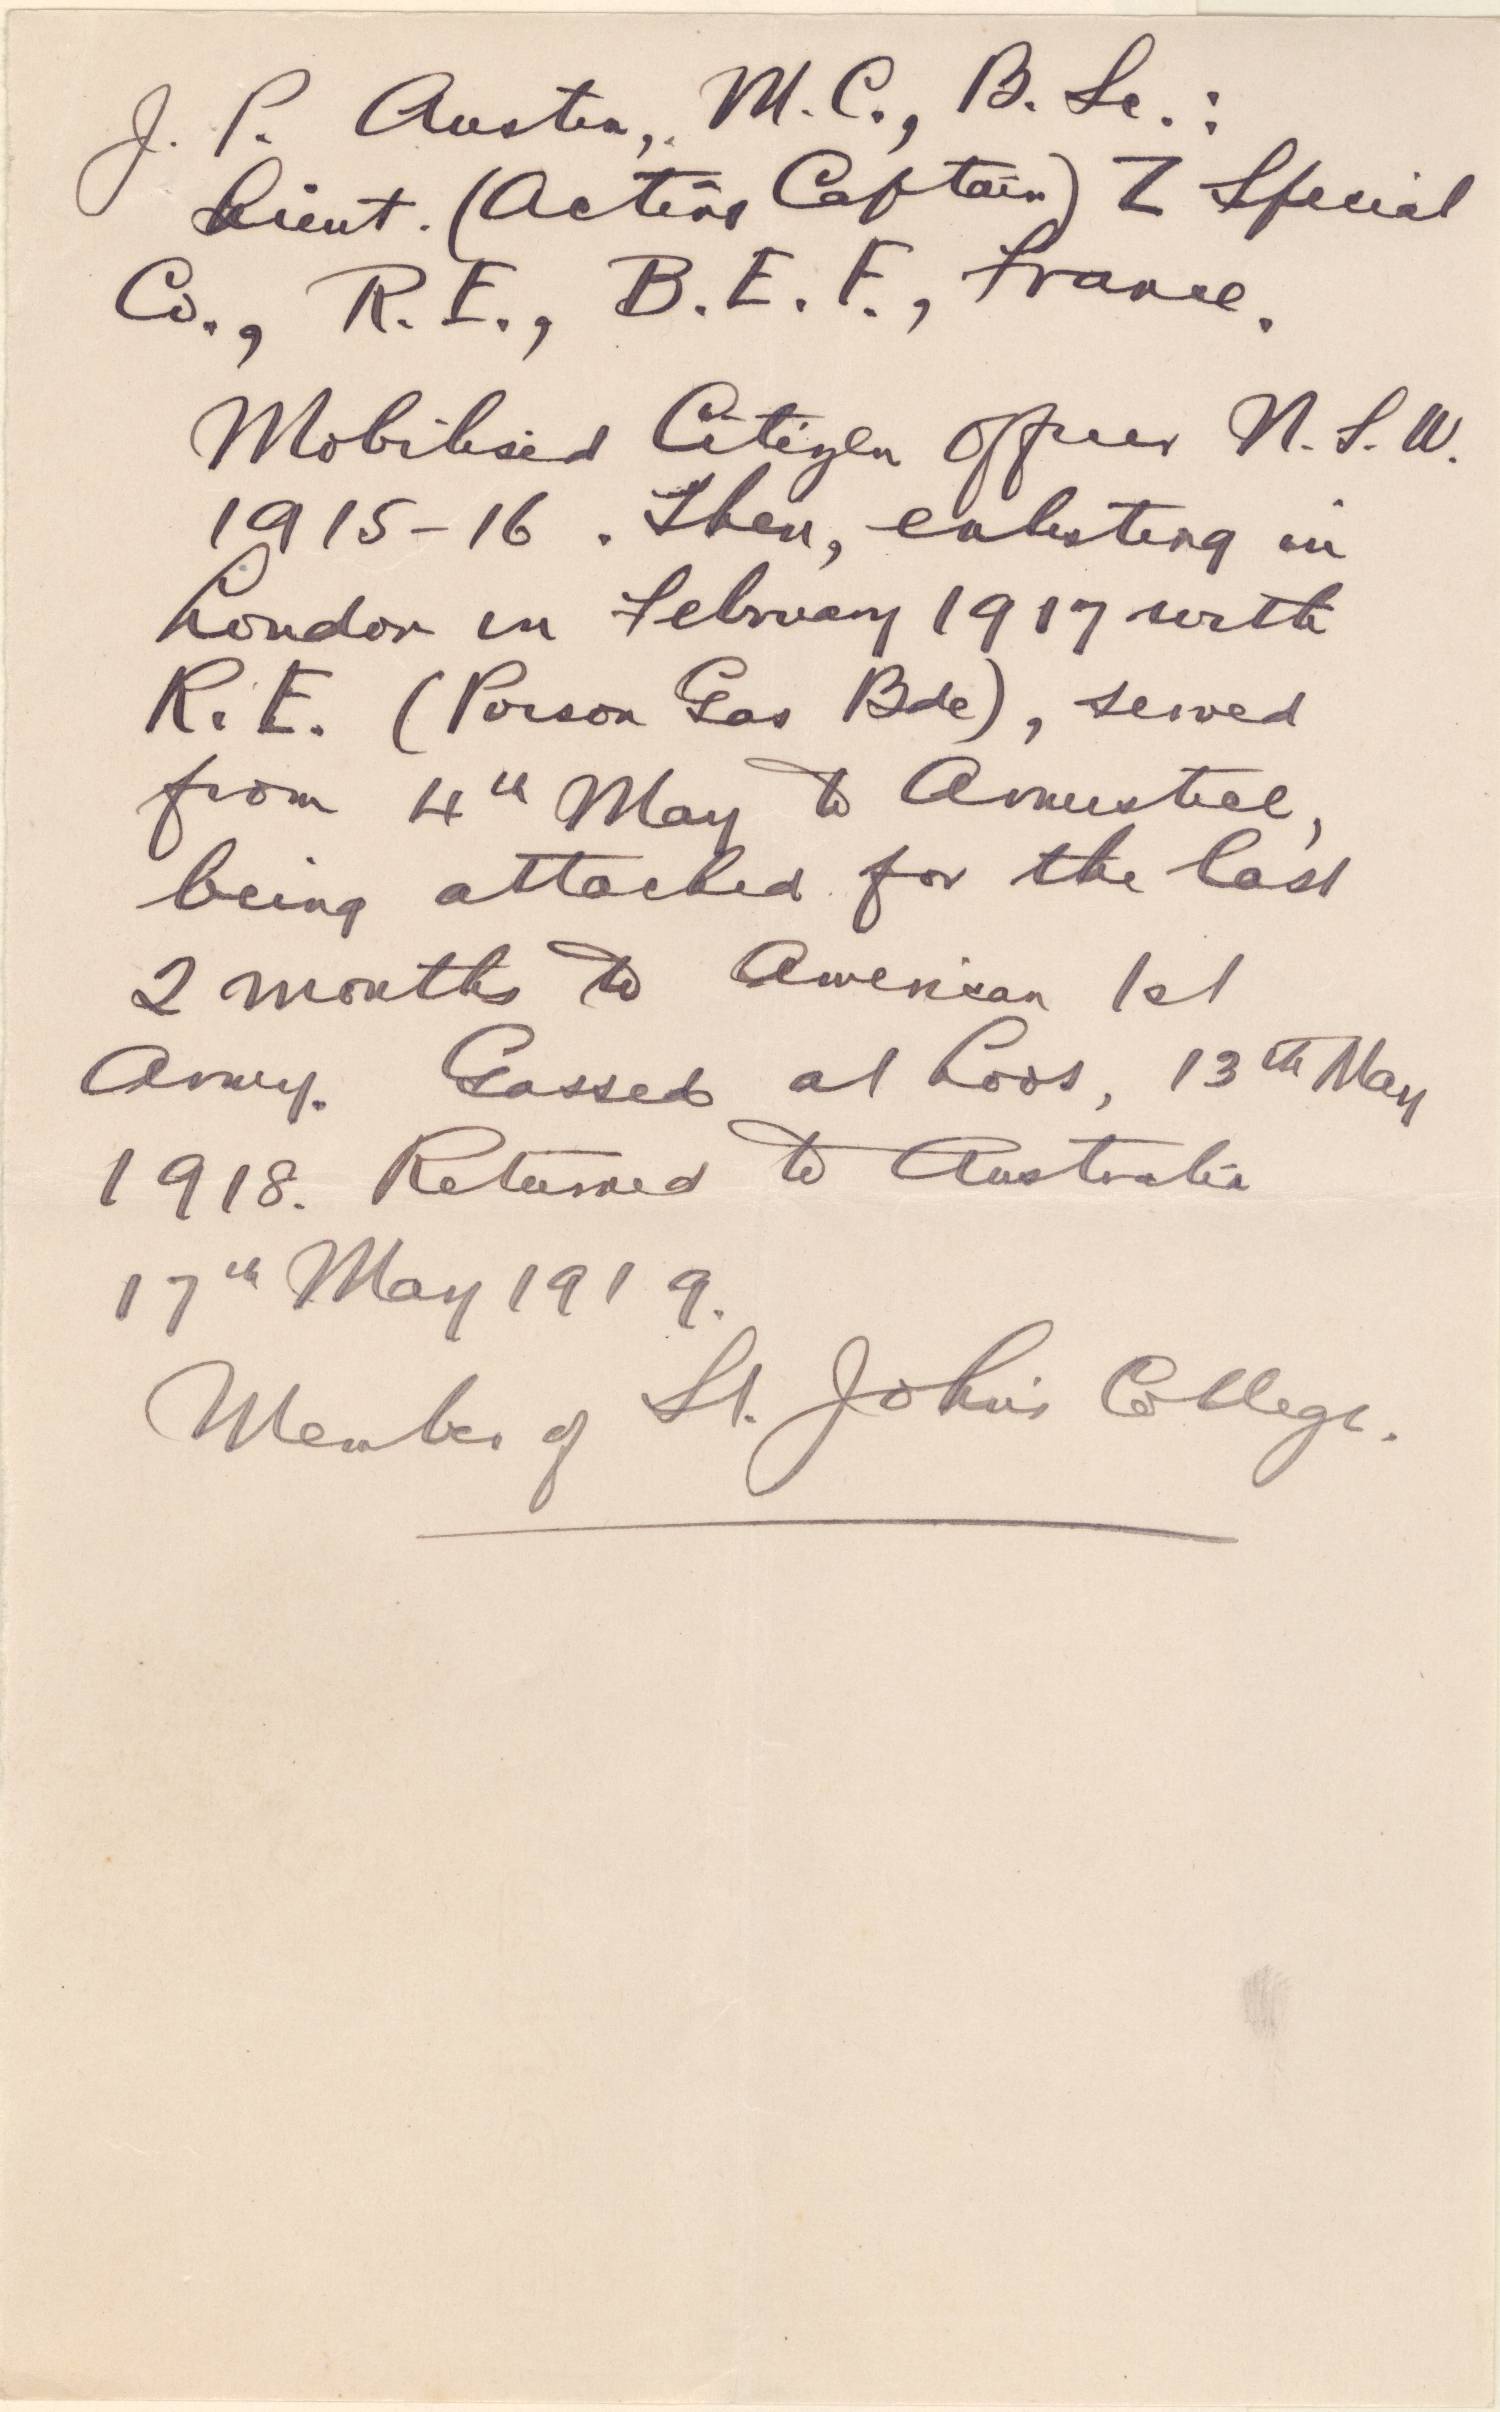 J. P. Austen, M.C., B.Sc.:
Lieut. (Acting Captain) Z Special
Co., R.E., B.E.F., France.
Mobilised Citizen Officer N.S.W.
1915-16. Then, enlisting in
London in February 1917 with
R.E. (Poison Gas Bde), served
from 4th May to Armistice,
being attached for the last
2 months to American 1st
Army. Gassed at Loos, 13th May
1918. Returned to Australia
17th May 1919.
Member of St. John's College.